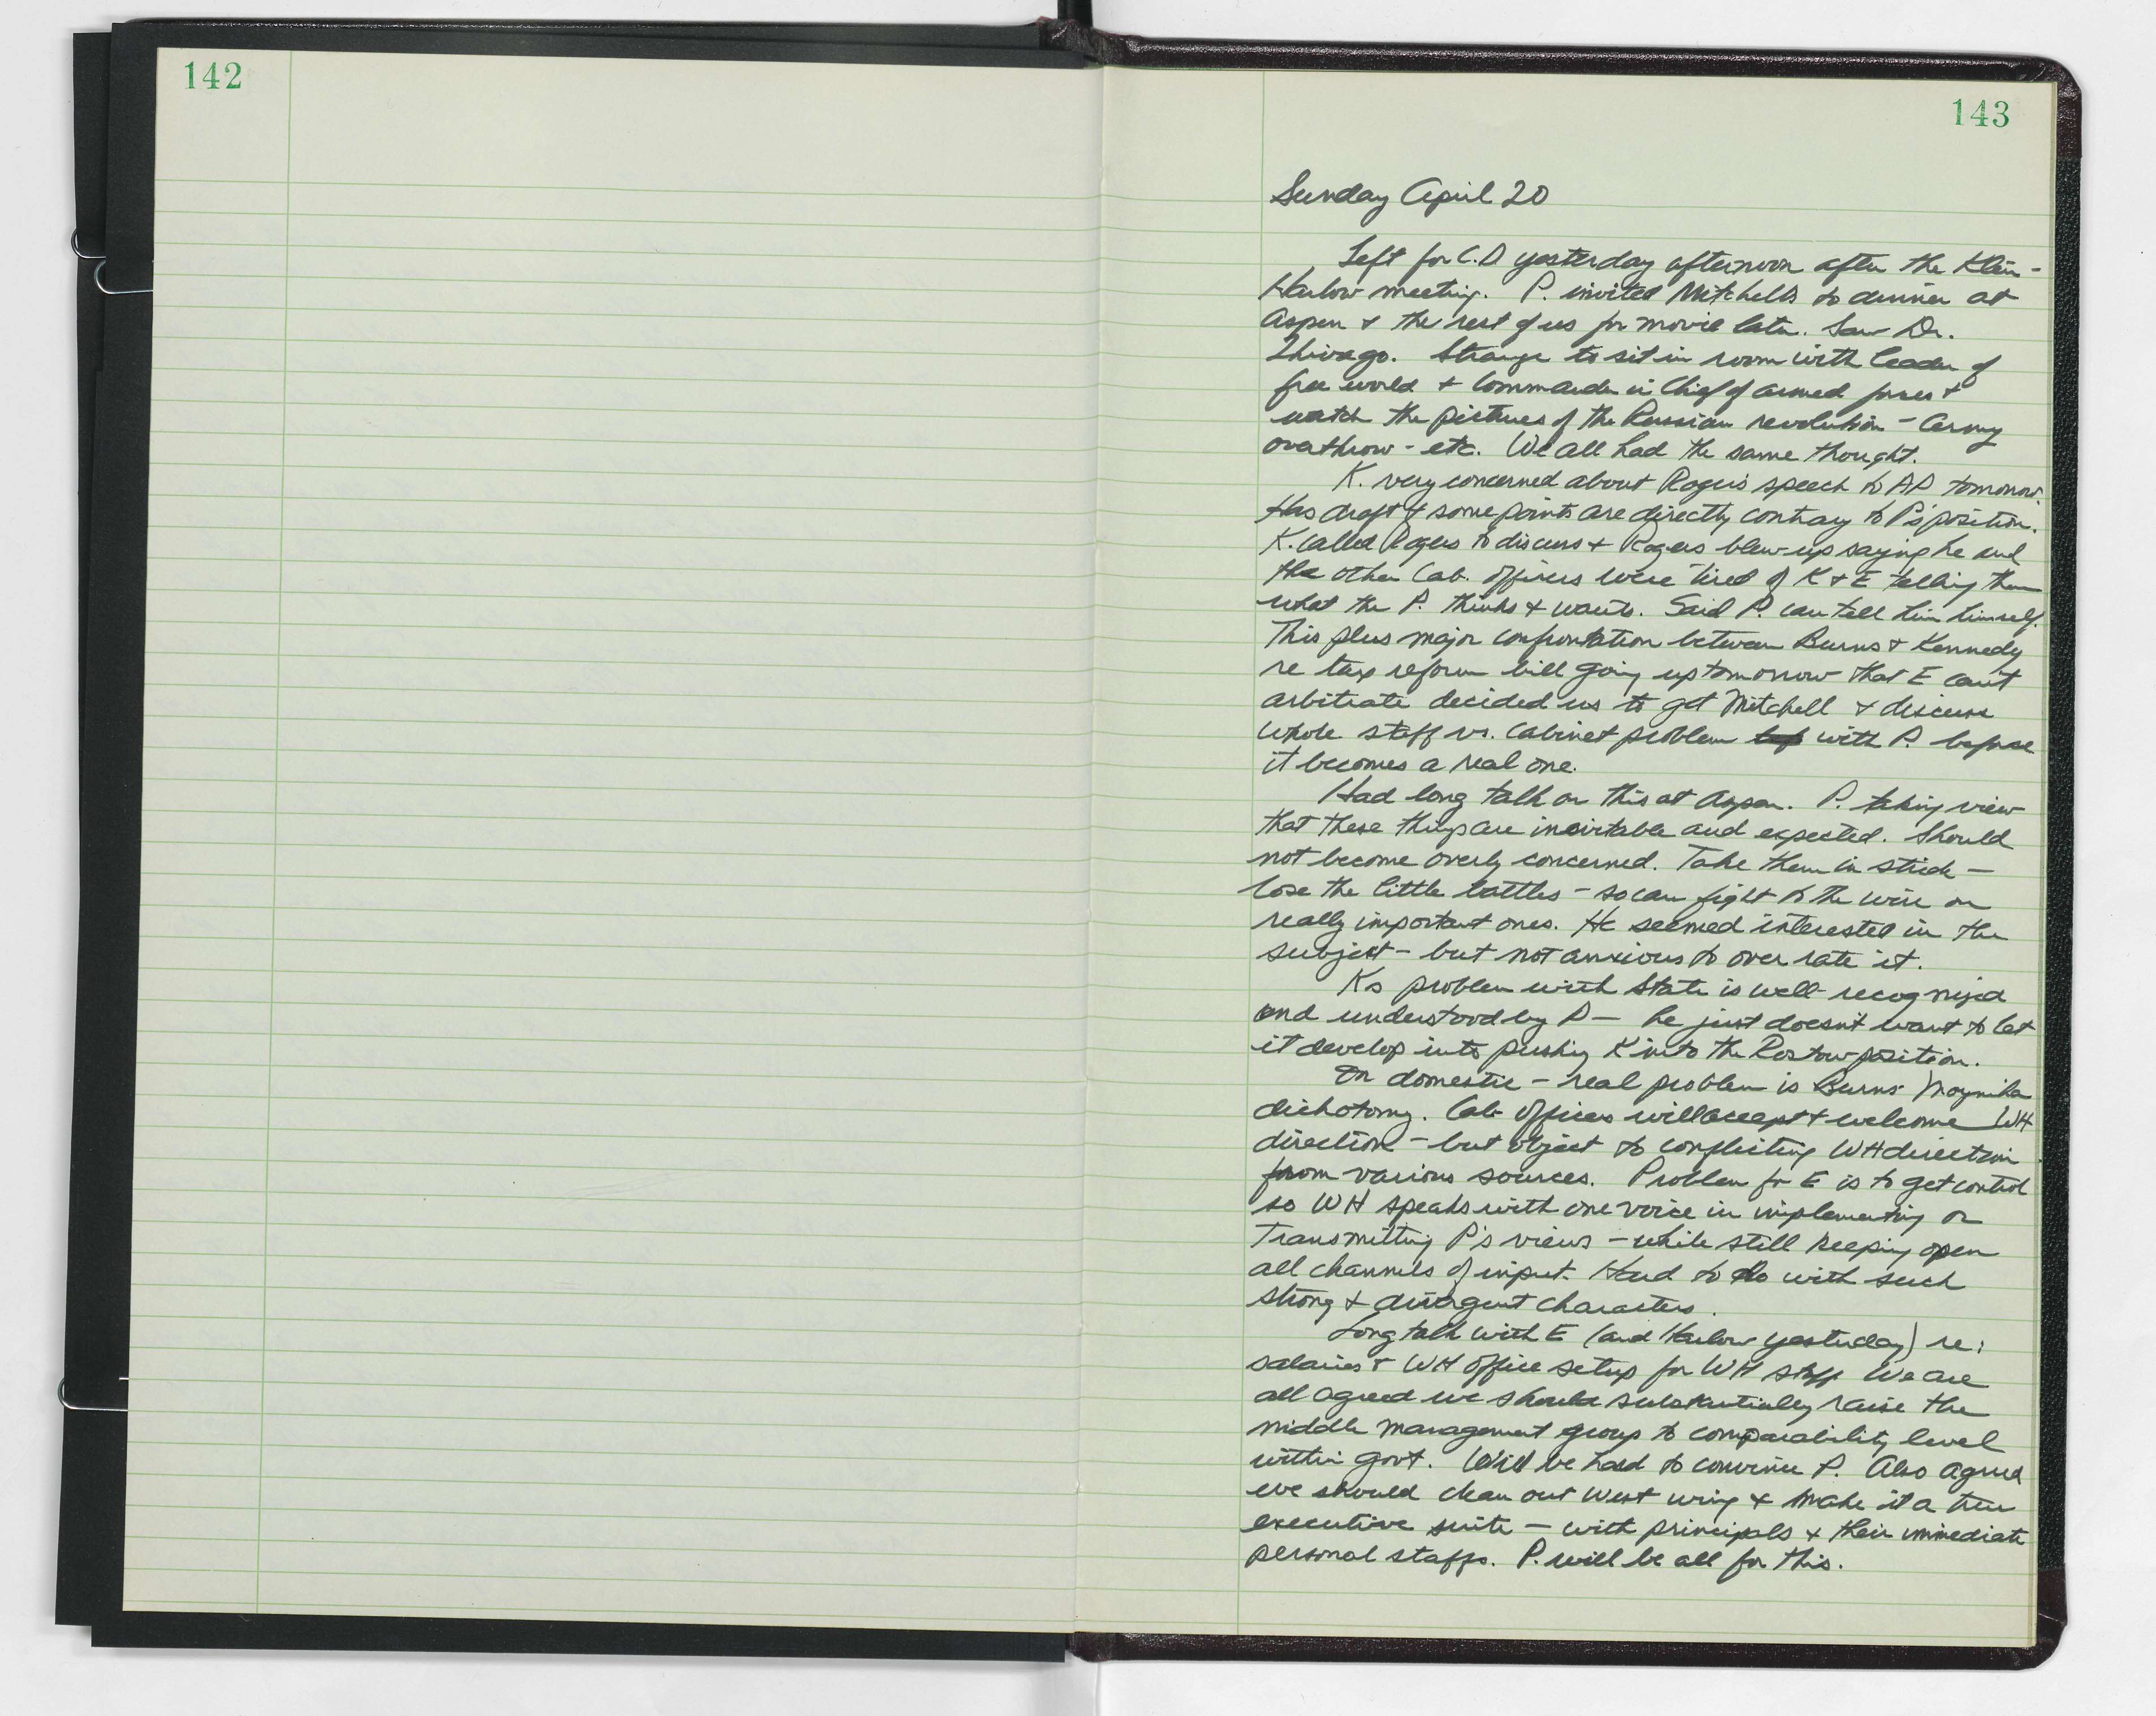 142
143
Sunday April 20
Left for C.D yesterday afternoon after the Klein-
Harlow meeting. P. invited Mitchells to dinner at
Aspen & the rest of us for movie later. Saw Dr.
Zhivago. Strange to sit in room with leader of
free world & Commander in Chief of armed forces &
watch the pictures of the Russian revolution - Army
overthrow - etc. We all had the same thought.
K. very concerned about Rogers speech to AP tomorrow.
Has draft & some points are directly contrary to P's position.
K. called Rogers to discuss & Rogers blew up saying he and
the other Cab. officers were tired of K & E telling them
what the P. thinks & wants. Said P. can tell him himself.
This plus major confrontation between Burns & Kennedy
re tax reform bill going up tomorrow that E can't
arbitrate decided us to get Mitchell & discuss
whole staff vs. Cabinet problem with P. before
it becomes a real one.
Had long talk on this at Aspen. P. taking view
that these things are inevitable and expected. Should
not become overly concerned. Take them in stride -
lose the little battles - so can fight to the wire on
really important ones. He seemed interested in the
subject - but not anxious to over rate it.
Ks problem with State is well recognized
and understood by P - he just doesn't want to let
it develop into pushing K into the Rostow position.
On domestic - real problem is Burns Moynihan
dichotomy. Cab officers will accept & welcome WH
direction - but object to conflicting WH direction
from various sources. Problem for E is to get control
so WH speaks with one voice in implementing or
transmitting P's views - while still keeping open
all channels of input. Hard to do with such
strong & divergent characters.
Long talk with E (and Harlow yesterday) re:
salaries & WH office setup for WH staff We are
all agreed we should substantially raise the
middle management group to comparability level
within govt. Will be hard to convince P. Also agreed
we should clean out West wing & make it a true
executive suite - with principals & their immediate
personal staffs. P. will be all for this.